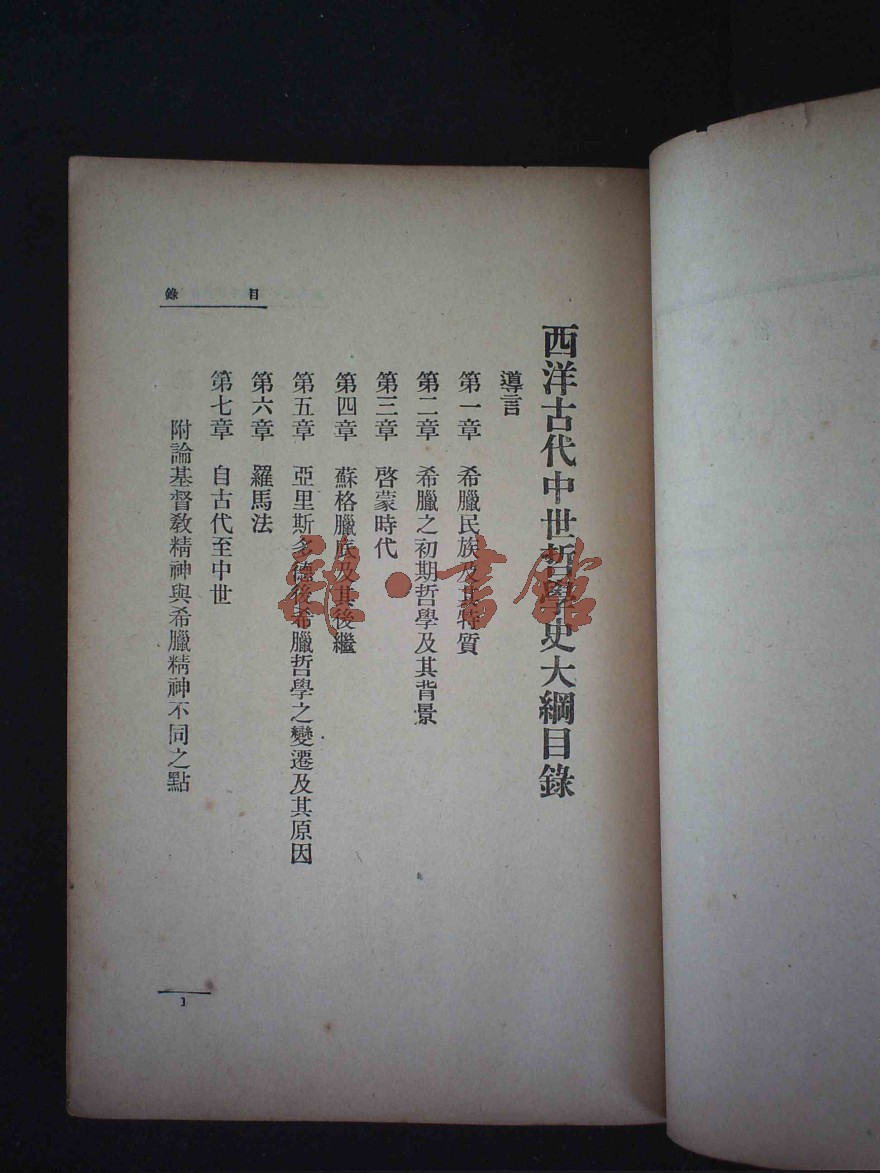 西洋古代中世哲學史大綱目錄
導言
第一章　希臘民族及其特質
第二章　希臘之初期哲學及其背景
第三章　啓蒙時代
第四章　蘇格臘底及其後繼
第五章　亞里斯多德後希臘哲學之變遷及其原因
第六章　羅馬法
第七章　自古代至中世
附論基督教精神與希臘精神不同之點
目錄
1
書館